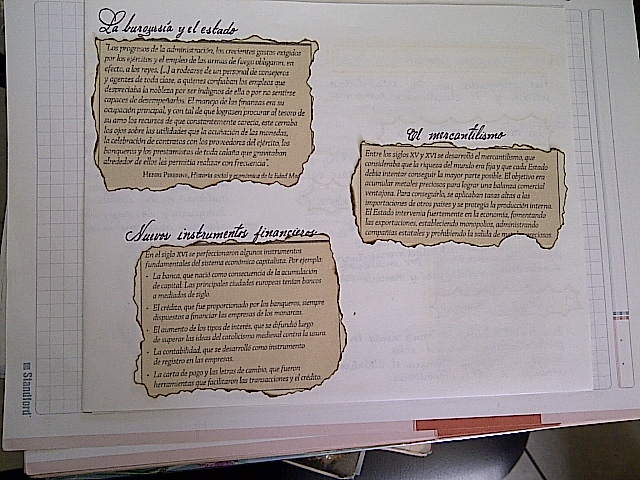 La burguesía y el estado
"Los progresos de la administración, los crecientes gastos exigidos
por los ejércitos y el empleo de las armas de fuego obligaron, en
efecto, a los reyes, [...] a rodearse de un personal de consejeros
y agentes de toda clase, a quienes confiaban los empleos que
despreciaba la nobleza por ser indignos de ella o por no sentirse
capaces de desempeñarlos. El manejo de las finanzas era su
ocupación principal, y con tal de que lograsen procurar al tesoro de
su amo los recursos de que constantemente carecía, este cerraba
los ojos sobre las utilidades que la acuñación de las monedas,
la celebración de contratos con los proveedores del ejército, los
banqueros y los prestamistas de toda ralea que gravitaban
alrededor de ellos les permitía realizar con frecuencia".
Henri Pirenne, Historia social y económica de la Edad Me
El mercantilismo
Entre los siglos XV y XVI se desarrolló el mercantilismo, que
consideraba que la riqueza del mundo era fija y que cada Estado
debía intentar conseguir la mayor parte posible. El objetivo era
acumular metales preciosos para lograr una balanza comercial
ventajosa. Para conseguirlo, se aplicaban tasas altas a las
importaciones de otros países y se protegía la producción interna.
El Estado intervenía fuertemente en la economía, fomentando
las exportaciones, estableciendo monopolios, administrando
compañías estatales y prohibiendo la salida de metales preciosos.
Nuevos instrumentos financieros
En el siglo XVI se perfeccionaron algunos instrumentos
fundamentales del sistema económico capitalista. Por ejemplo:
• La banca, que nació como consecuencia de la acumulación
de capital. Las principales ciudades europeas tenían bancos
a mediados de siglo.
• El crédito, que fue proporcionado por los banqueros, siempre
dispuestos a financiar las empresas de los monarcas.
• El aumento de los tipos de interés, que se difundió luego
de superar las ideas del catolicismo medieval contra la usura.
• La contabilidad, que se desarrolló como instrumento
de registro en las empresas.
• La carta de pago y las letras de cambio, que fueron
herramientas que facilitaron las transacciones y el crédito.
Standford